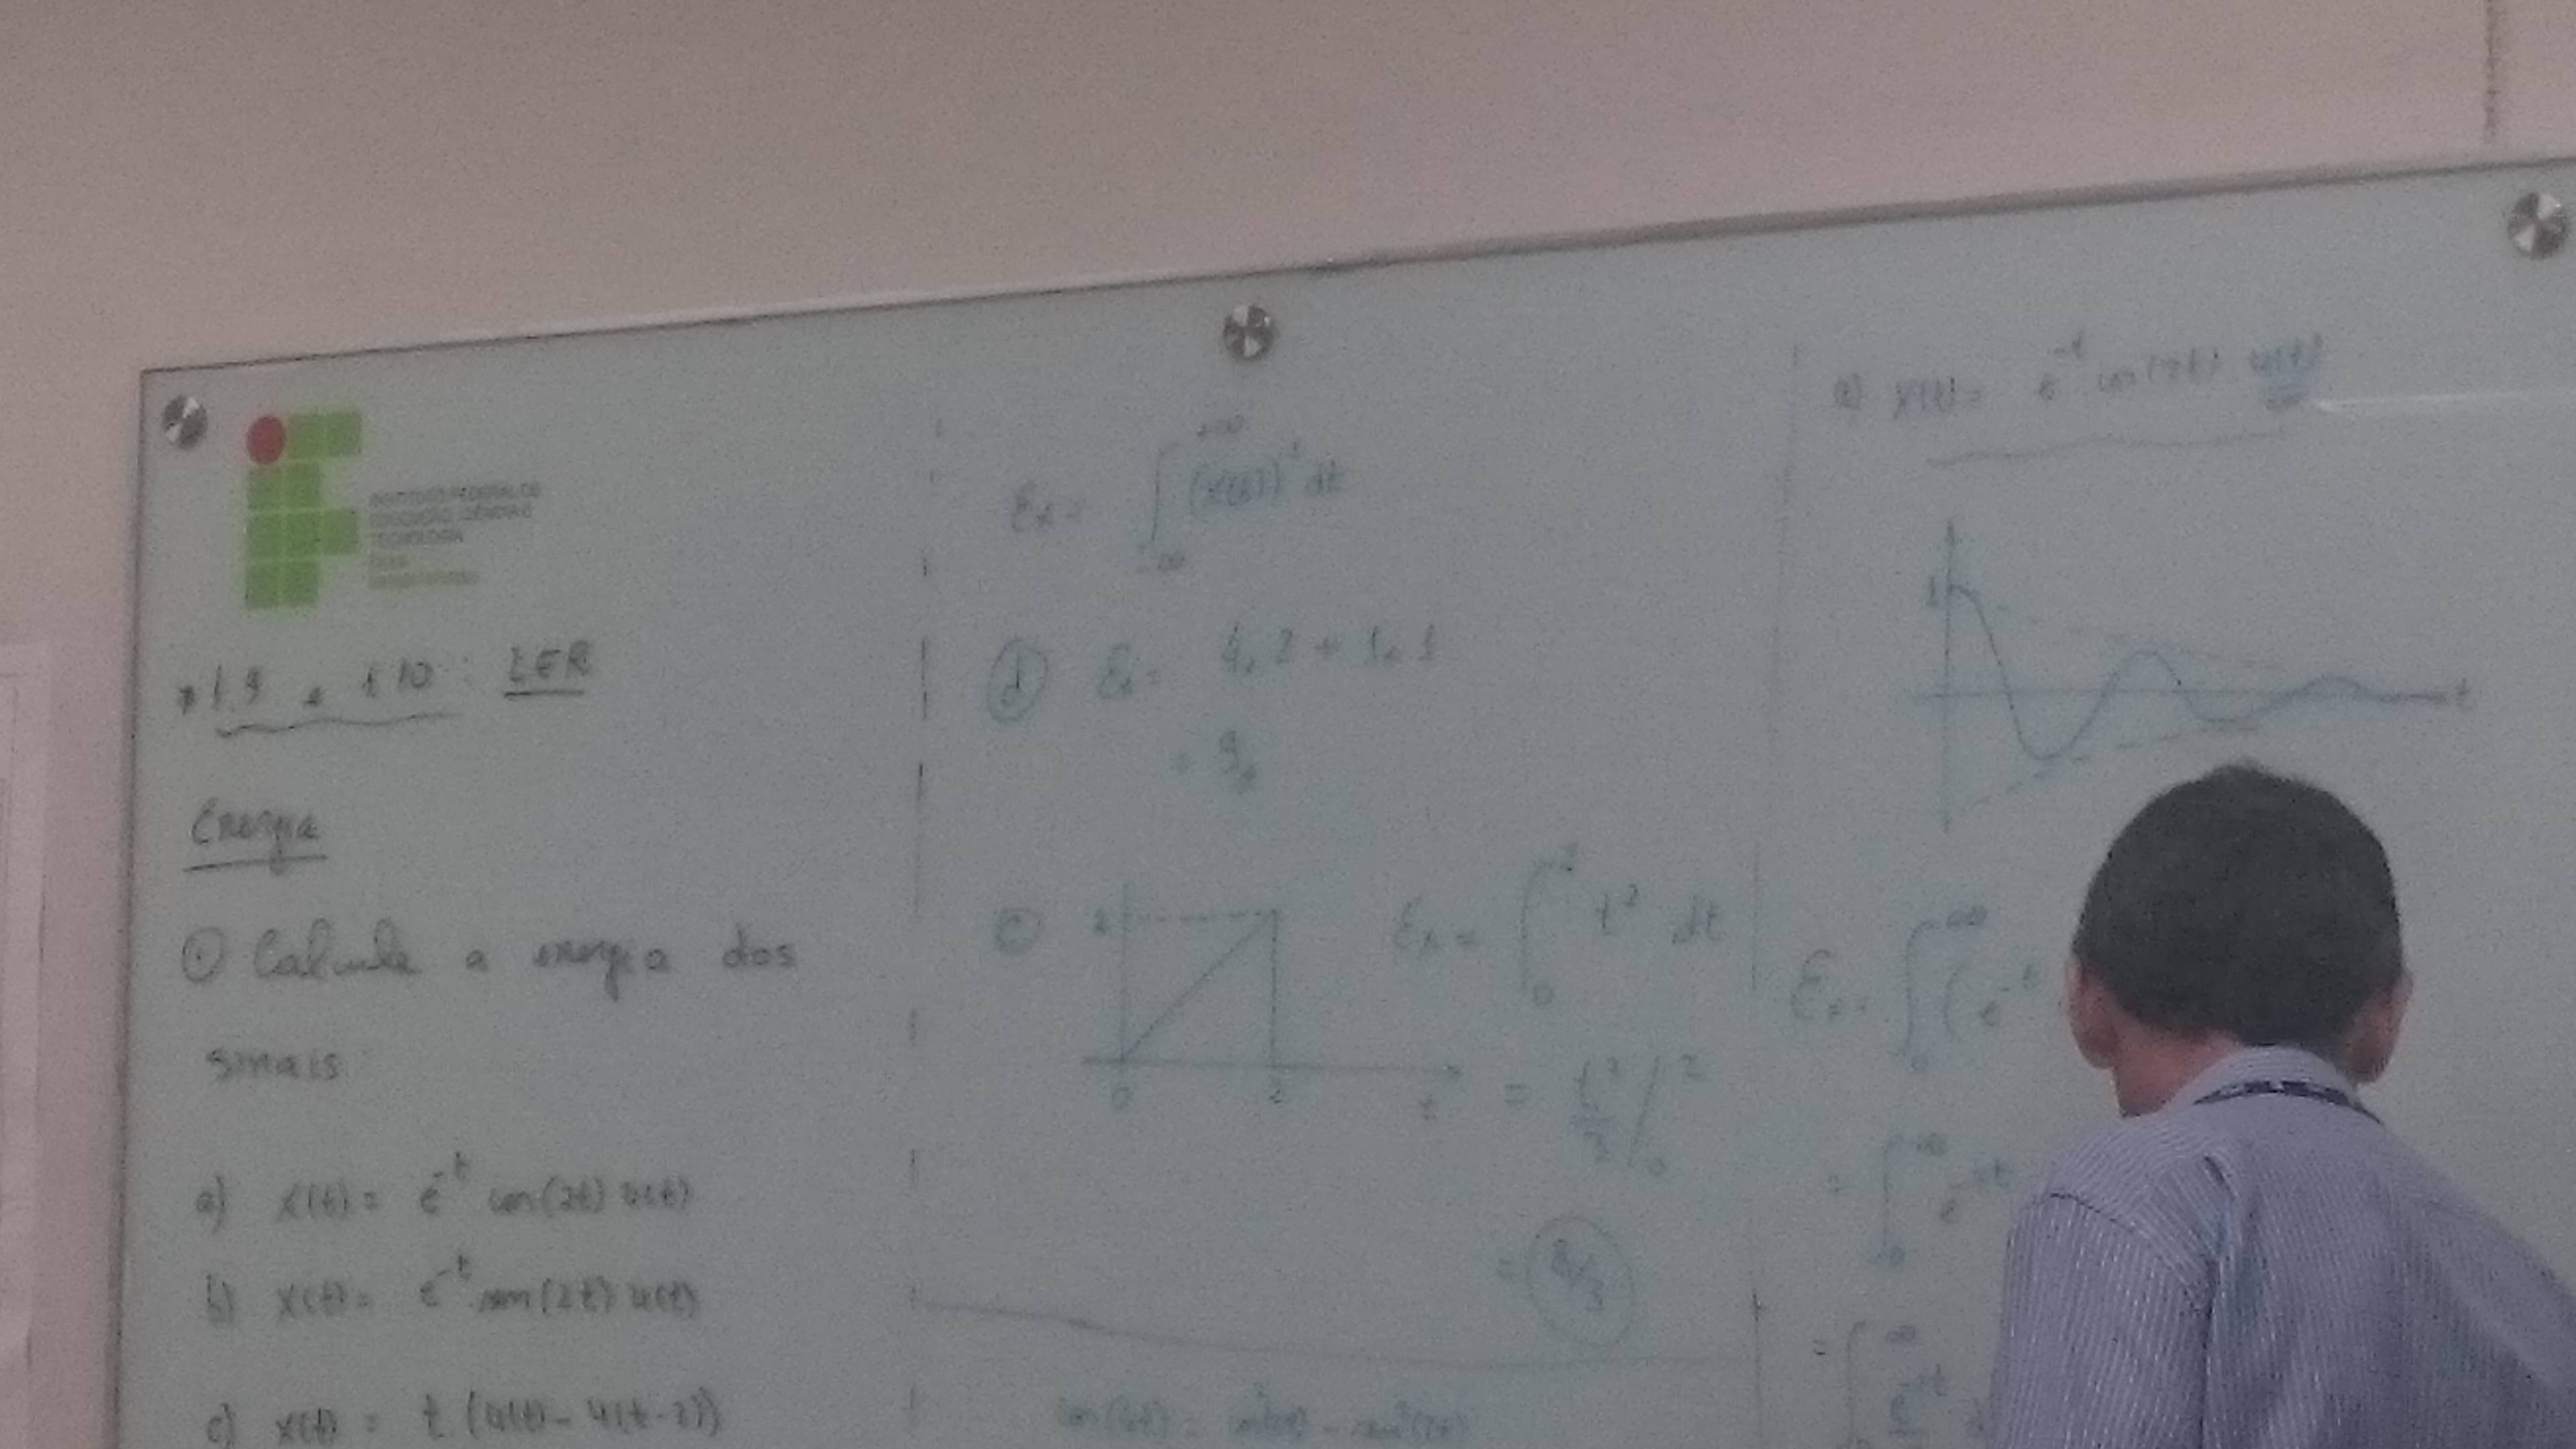 INSTITUTO FEDERAL DE
EDUCAÇÃO, CIÊNCIA E
TECNOLOGIA
* 1.9 e 1.10 : LER
Energia
① Calcule a energia dos
sinais:
a) x(t) = e^-t cos(2t) u(t)
b) x(t) = e^-t sen(2t) u(t)
c) x(t) = t (u(t) - u(t-2))
Ex = ∫_-∞^+∞ (x(t))² dt
ⓓ Ex = 4.2 + 1.1
= 9
ⓒ
2
0 2 t
Ex = ∫_0^2 t² dt
= t³/3 |_0^2
= 8/3
a) x(t) = e^-t cos(2t) u(t)
1
t
Ex = ∫_0^∞ (e^-t
= ∫_0^∞ e^-2t
= ∫_0^∞